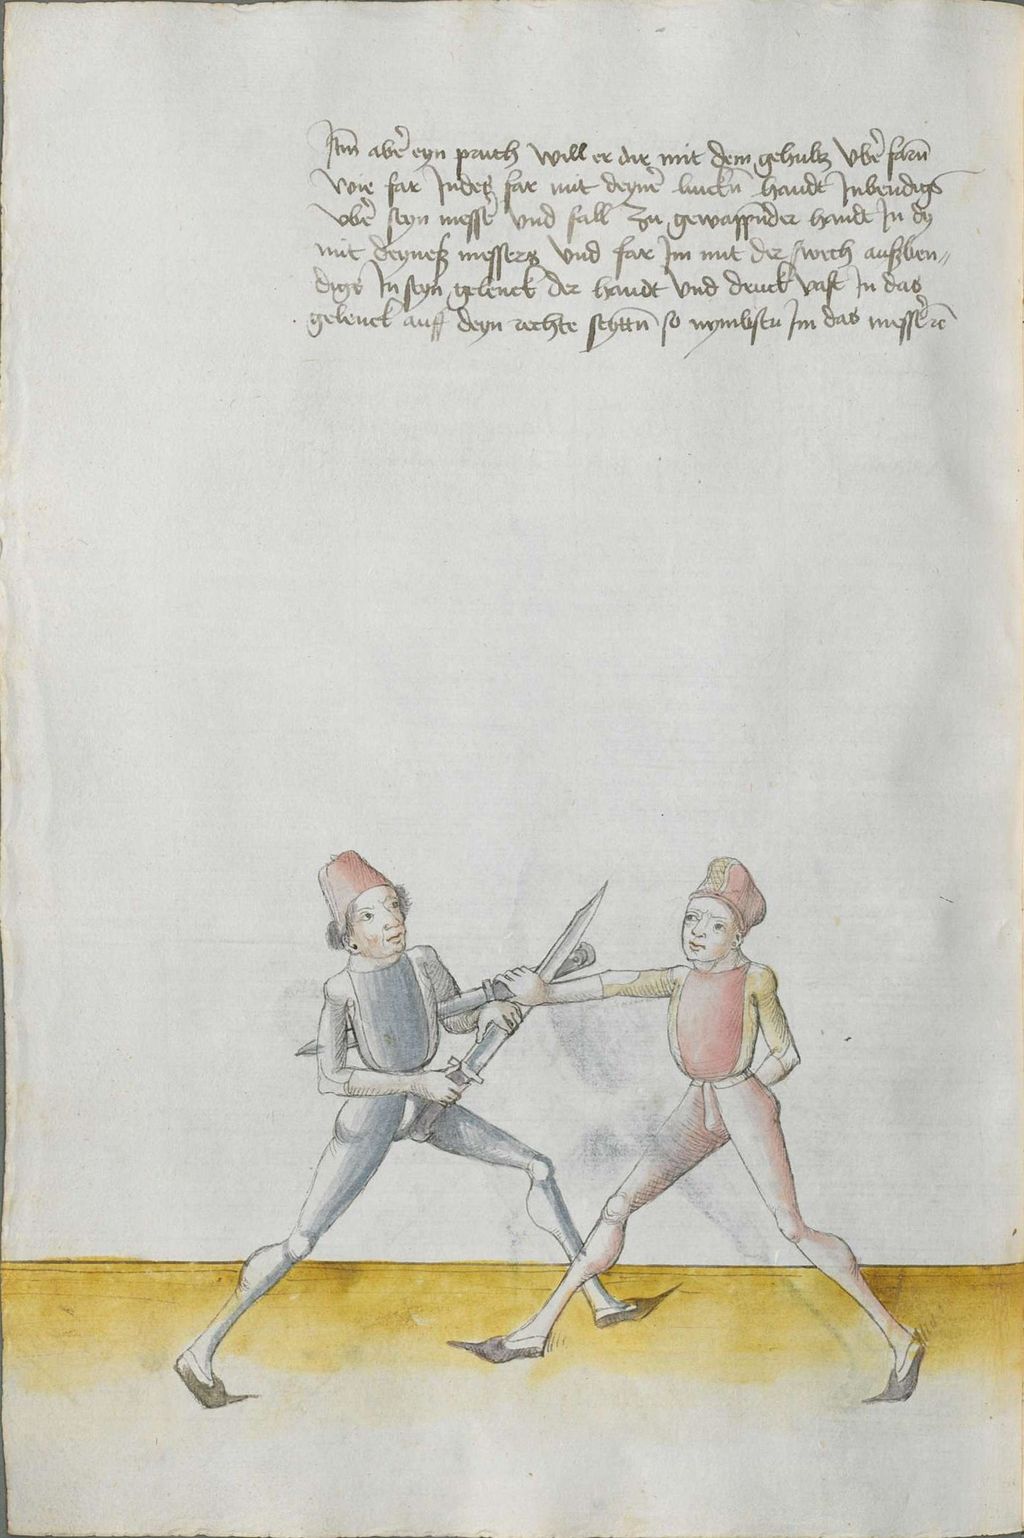 Itm̄ abe᷑ eyn pruch will er dir mit dem gehultz vbe᷑ farn̄
wie far Indes far mit deyne᷑ linckn̄ handt Inbendigs
vbe᷑ seyn messe᷑ vnd fall zu gewappn̄der handt In dy
mit deyneß messers vnd far Im mit der sterck außben„
digs In seyn gelenck der handt vnd druck vast In das
gelenck auff deyn rechte seyttn̄ so nymbstu Im das messe᷑ rc̄